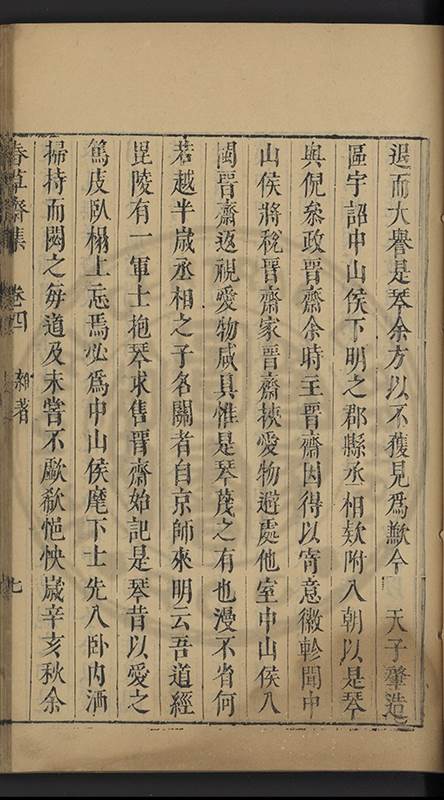 退而大譽是琴余方以不獲見爲歉今 天子肇造
區宇詔中山侯下明之郡縣丞相欵附入朝以是琴
與倪叅政晋齋余時主晋齋因得以寄意徽軫聞中
山侯將稅晋齋家晋齋挾愛物避處他室中山侯入
閩晋齋返視愛物咸具惟是琴蔑之有也漫不省何
若越半嵗丞相之子名關者自京師來明云吾道經
毘陵有一軍士抱琴求售晋齋始記是琴昔以愛之
篤皮臥榻上忘焉必爲中山侯麾下士先入卧内洒
掃持而閟之毎道及未嘗不歔欷悒怏嵗辛亥秋余
春草齋集 卷四 雜著 七